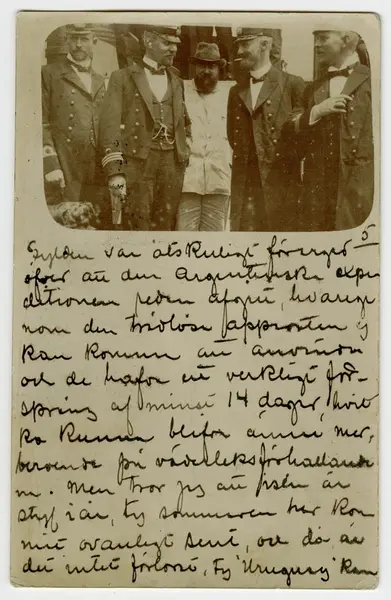 5
Gyldén var åtskilligt förargad
öfver att den Argentinska expe
ditionen redan afgått, hvarige
nom den trådlösa apparaten ej
kan komma att användas
och de hafva ett verkligt för-
språng af minst 14 dagar, hvil
ka kunna blifva ännu mer,
beroende på väderleksförhållande
na. Men tror jag att isen är
styf i år, ty sommaren har kom
mit ovanligt sent, och då är
det intet förlorat, ty "Uruguay" kan